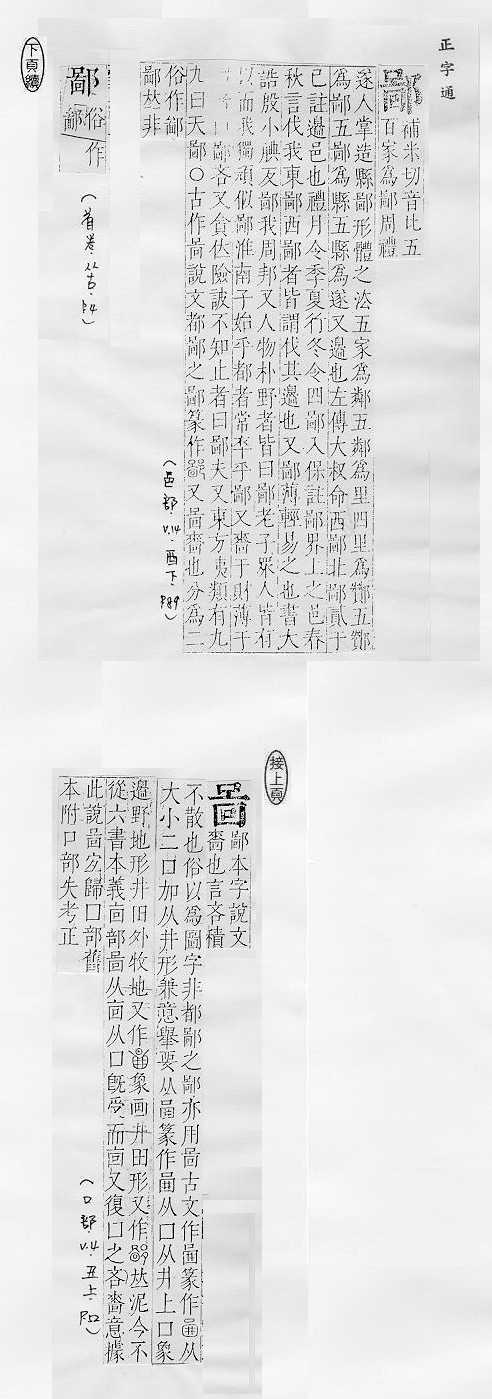 正字通
鄙
補米切音比五
百家為鄙周禮
遂人掌造縣鄙形體之法五家為鄰五鄰為里四里為酇五酇
為鄙五鄙為縣五縣為遂又邊也左傳大叔命西鄙北鄙貳于
己註邊邑也禮月令季夏行冬令四鄙入保註鄙界上之邑春
秋言伐我東鄙西鄙者皆謂伐其邊也又鄙薄輕易之也書大
誥殷小腆反鄙我周邦又人物朴野者皆曰鄙老子眾人皆有
以而我獨頑似鄙淮南子始乎都者常卒乎鄙又嗇于財薄于
鄙吝又貪佷險詖不知止者曰鄙夫又東方夷類有九
九曰天鄙○古作啚說文都鄙之鄙篆作又啚嗇也分為二
俗作鄙
鄙𠀤非
(邑部.V.14.酉下.P89)
鄙
俗作
鄙
(首卷.从古.P4)
下頁續
接上頁
啚
鄙本字說文
嗇也言吝積
不散也俗以為圖字非都鄙之鄙亦用啚古文作篆作从
大小二口加从井形兼意舉要从啚篆作从口从井上口象
邊野地形井田外牧地又作象画井田形又作𠀤泥今不
從六書本義㐭部啚从㐭从口旣受而㐭又復口之吝嗇意據
此說啚宐歸口部舊
本附囗部失考正
(口部.V.4.丑上.P52)